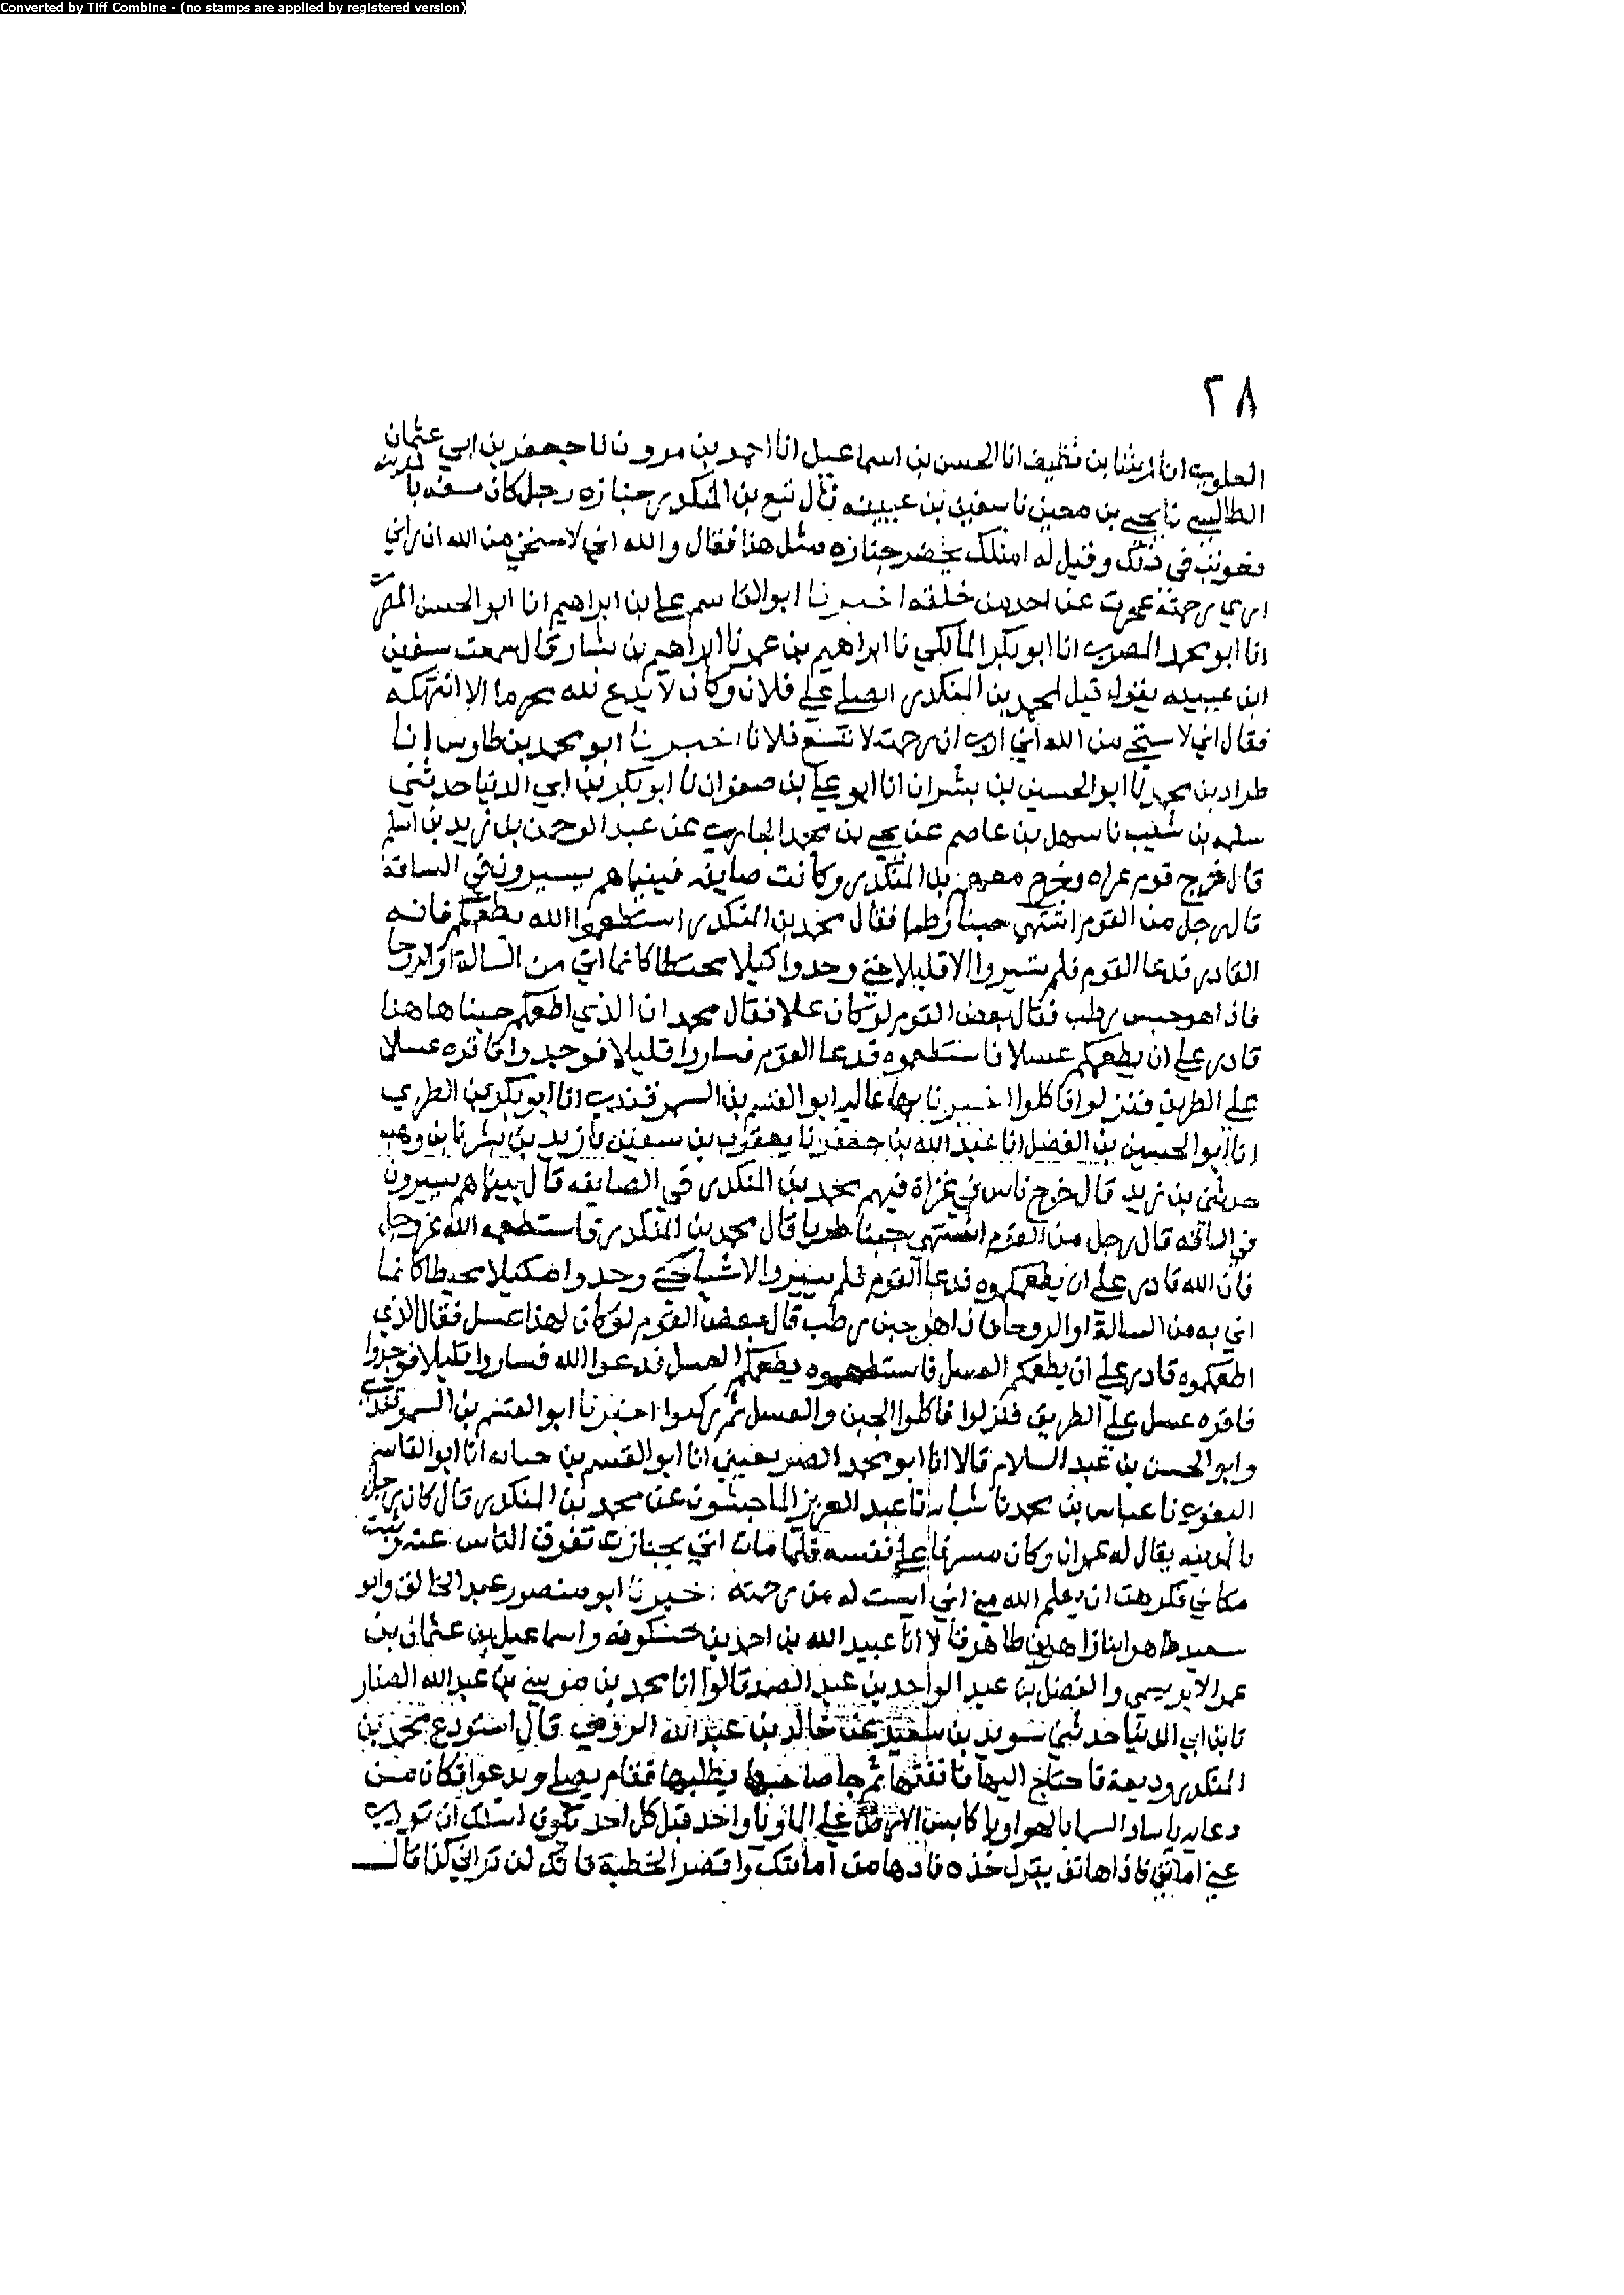 Converted by Tiff Combine - (no stamps are applied by registered version)
٢٨
العلوي انا رشا بن نظيف انا الحسن بن اسماعيل انا احمد بن مروان نا جعفر بن ابي عثمان
الطيالسي نا يحيى بن معين نا سفين بن عيينه قال تبع بن المنكدر جنازه رجل كان يسفه بالمدينه
فعوتب في ذلك وقيل له امثلك يحضر جنازه مثل هذا فقال والله اني لاستحي من الله ان يراني
ارى رحمته عجزت عن احد من خلقه اخبرنا ابو القاسم علي بن ابراهيم انا ابو الحسن المقرئ
انا ابو محمد المصري انا ابو بكر المالكي نا ابراهيم بن عمر نا ابراهيم بن بشار قال سمعت سفين
ابن عيينه يقول قيل لمحمد بن المنكدر اتصلي على فلان وكان لا يدع لله محرما الا انتهكه
فقال اني لاستحي من الله اني ارى ان رحمته لا تسع فلانا اخبرنا ابو محمد بن طاوس انا
طراد بن محمد نا ابو الحسين بن بشران انا ابو علي بن صفوان نا ابو بكر بن ابي الدنيا حدثني
سلمه بن شبيب نا سهل بن عاصم عن يحيى بن محمد الجاري عن عبد الرحمن بن زيد بن اسلم
قال خرج قوم غزاه وخرج معهم بن المنكدر وكانت صايفه فبينما هم يسيرون في الساقة
قال رجل من القوم اشتهي جبنا رطبا فقال محمد بن المنكدر استطعموا الله يطعمكم فانه
القادر فدعا القوم فلم يسيروا الا قليلا حتى وجدوا مكتلا محيطا كانما اتي من السالة او الروحا
فاذا هو جبن رطب فقال بعض القوم لو كان عسلا فقال محمد ان الذي اطعمكم جبنا هاهنا
قادر على ان يطعمكم عسلا فاستطعموه فدعا القوم فساروا قليلا فوجدوا فاقره عسلا
على الطريق فنزلوا فاكلوا اخبرنا بها عاليه ابو القسم بن السمرقندي انا ابو بكر بن الطبري
انا ابو الحسين بن الفضل انا عبد الله بن جعفر نا يعقوب بن سفين نا زيد بن بشر نا بن وهب
حدثني بن زيد قال خرج ناس في غزاة فيهم محمد بن المنكدر في الصايفه قال بينا هم يسيرون
في الساقه قال رجل من القوم اشتهي جبنا طريا قال محمد بن المنكدر فاستطعمه الله عز وجل
فان الله قادر على ان يطعمكموه فدعا القوم فلم يسيروا الا شيا حتى وجدوا مكتلا محيطا كانما
اتي به من السالة او الروحا فاذا هو جبن رطب قال بعض القوم لو كان لهذا عسل فقال الذي
اطعمكموه قادر على ان يطعمكم العسل فاستطعموه يطعمكم العسل فدعوا الله فساروا قليلا فوجدوا
فاقره عسل على الطريق فنزلوا فاكلوا الجبن والعسل ثم ركبوا اخبرنا ابو القسم بن السمرقندي
وابو الحسن بن عبد السلام قالا انا ابو محمد الصريفيني انا ابو القسم بن حبابه انا ابو القاسم
البغوي نا عباس بن محمد نا شبابه نا عبد العزيز الماجشون عن محمد بن المنكدر قال كان رجل
بالمدينه يقال له عمران وكان مسرفا على نفسه فلما مات اتي بجنازته تفرق الناس عنه وثبت
مكاني فكرهت ان يعلم الله مني اني ايست له من رحمته اخبرنا ابو منصور عبد الخالق وابو
سعيد طاهر ابنا زاهر بن طاهر قالا انا عبيد الله بن احمد بن حسكويه واسماعيل بن عثمان بن
عمر الابريسمي والفضل بن عبد الواحد بن عبد الصمد قالوا انا محمد بن موسى بن عبد الله الصفار
نا بن ابي الدنيا حدثني سويد بن سعيد عن خالد بن عبد الله الرومي قال استودع محمد بن
المنكدر وديعة فاحتاج اليها فانفقها ثم جا صاحبها يطلبها فقام يصلي ويدعوا فكان من
دعايه يا ساد السما بالهوا ويا كابس الارض على الما ويا واحد قبل كل احد يكون اسلك ان تودي
عني امانتي فاذا هاتف يقول خذ هذه فادها من امانتك واقصر الخطبة فانك لن تراني كذا قال